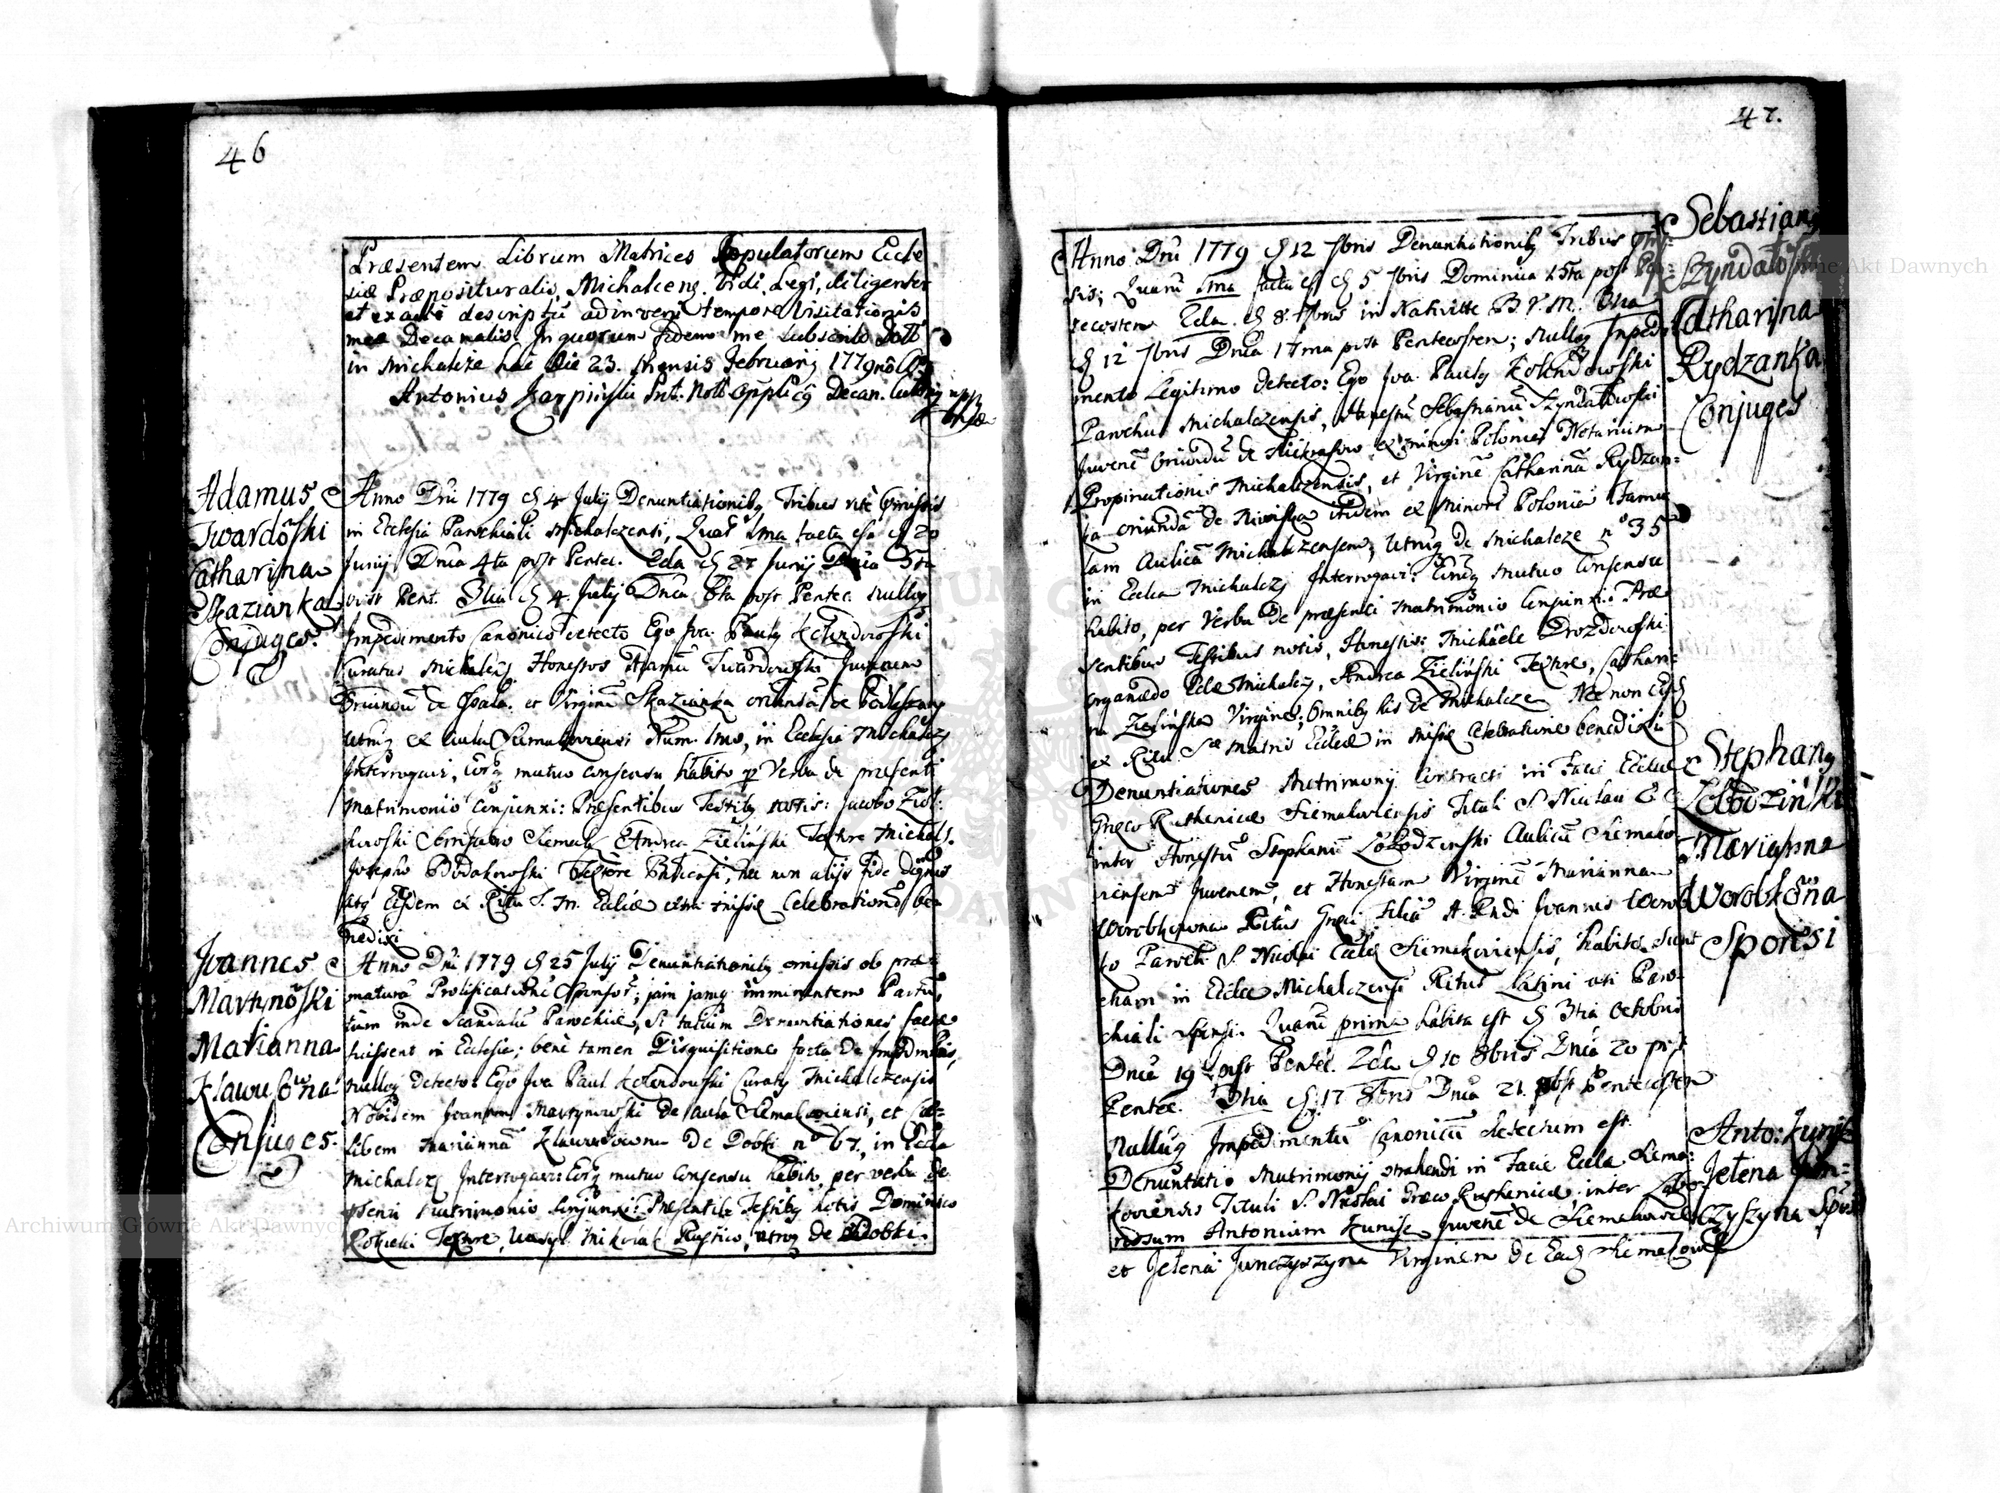 46
Præsentem Librum Matrices Copulatorum Eccle
siæ Præposituralis Michalcens. diligenter
et exacte descriptū adinveni tempore Visitationis
meæ Decanalis. In quorum fidem me subscribo Datt
in Michalcze hac die 23. Mensis Februarij 1779
Antonius Karpiński
Adamus
Twardōski
Catharina
Skazianka
Conjuges.
Anno Dni 1779 d 4 Julij Denuntiationibꝫ Tribus rite præmissis
in Ecclesia Parochiali Michalczensi, Quarū 1ma facta est d 20
Junij Dnica 4ta post Pentec. 2da d 27 Junij Dnica 5ta
post Pent. 3tia d 4 Julij Dnica 6ta post Pentec. nulloq
Impedimento Canonico detecto Ego Jva. Pauly Kolendowski
Curatus Michalcz. Honestos Adamū Twardowski Juvenem
Oriundū de et Virginē Skazianka oriundā de
utrūq ex aula Siemakoviensi Num. 1mo, in Ecclesia Michalcz
Interrogavi, eorūq mutuo consensu habito p Verba de præsenti
Matrimonio Conjunxi: Præsentibus Testibꝫ notis: Jacobo
Andrea Zieliński Textore Michalc.
Josepho Bodakowski Textore nec non alijs fide dignis
atq Eisdem ex Ritu S. M. Ecclæ extra Missæ Celebrationē be
nedixi
Joannes
Martynōski
Marianna
Klawusōna
Conjuges.
Anno Dni 1779 d 25 Julij Denuntiationibꝫ omissis ob præ
maturā Prolificationē Sponsor; jam jamq imminentem Partū,
tum inde Scandalū Parochiæ, si talium Denuntiationes factæ
fuissent in Ecclesia; bene tamen Disquisitione facta de Impedimentis,
nulloq detecto. Ego Jva Paul Kolendowski Curatq Michalczensis
Nobilem Joannem Martynowski de aula Siemakoviensi, et Cæ=
libem Mariannā Klawusowna De Dobki nº 67, in Eccla
Michalcz Interrogavi Eorūq mutuo Consensu habito, per verba de
psenti Matrimonio Conjunxi: Præsentibꝫ Testibꝫ notis Dominico
Rokicki Textore, Wasyl Mikolak Rustico, utroq de Dobki.
47.
Sebastianq
Szyndatōski
Catharina
Rydzanka
Conjuges
Anno Dni 1779 d 12 7bris Denuntiationibꝫ Tribus
sis; Quarū 1ma facta est d 5 7bris Dominica 15ta post Pen
tecosten 2da d 8 7bris in Nativitte B. V. M. 3tia
d 12 7bris Dnica post Pentecosten; nulloq Impedi
mento Legitimo detecto: Ego Jva. Pauly Kolendowski
Parochus Michalczensis, Honestū Sebastianū Szyndatowski
Juvenē Oriundū de ex minori Poloniæ Notarium
Propinationis Michalczensis, et Virginē Catharinā Rydzan=
ka oriundā de itidem ex Minori Polonia Famu
lam Aulicā Michalczensem; utrūq de Michalcze nº 35
in Eccla Michalcz Interrogavi: Eorūq mutuo Consensu
habito, per Verba de præsenti Matrimonio Conjunxi: Præ
sentibus Testibus notis, Honestis: Michaele Drozdowski
organædo Eclæ Michalcz, Andrea Zieliński Textore, Cathari=
na Zielińska Virginē; Omnibꝫ his de Michalcze. Nec non Eosd
ex Ritu S Matris Eccleæ in Missæ Celebratione benedixi.
Stephanq
Lobozińki
Marijanna
Worobkōna
Sponsi
Denuntiationes Matrimonij Contracti in Facie Ecclæ
Græco Ruthenicæ Siemakoviensis Tituli S. Nicolai
inter Honestū Stephanū Lobodzinski Aulicū Siemako
viensem Juvenem, et Honestam Virginē Marianna
Worobkiewna Ritus Græci filiā A Rndi Joannis Worob
ko Paroch S. Nicolai Eccle Siemakoviensis, habitæ sunt
etiam in Ecclea Michalczensi Ritus Latini uti Paro
chiali Sponsi. Quarū prima habita est d 3tia Octobris
Dnica 19 post Pentec. 2da d 10 8bris Dnica 20 post
Pentec. 3tia d 17 8bris Dnica 21. post Pentecosten
Nullūq Impedimentū Canonicū detectum est.
Anto: Kunise
Jelena Jun=
czyszyna Spōsi
Denuntiatio Matrimonij contrahendi in Facie Eccla Siema:
koviensis Tituli S. Nicolai Græco Ruthenicæ; inter Labo
riosum Antonium Kunise Juvenē de Siemakowce
et Jelena Junczyszyna Virginem de Ead Siemakowce